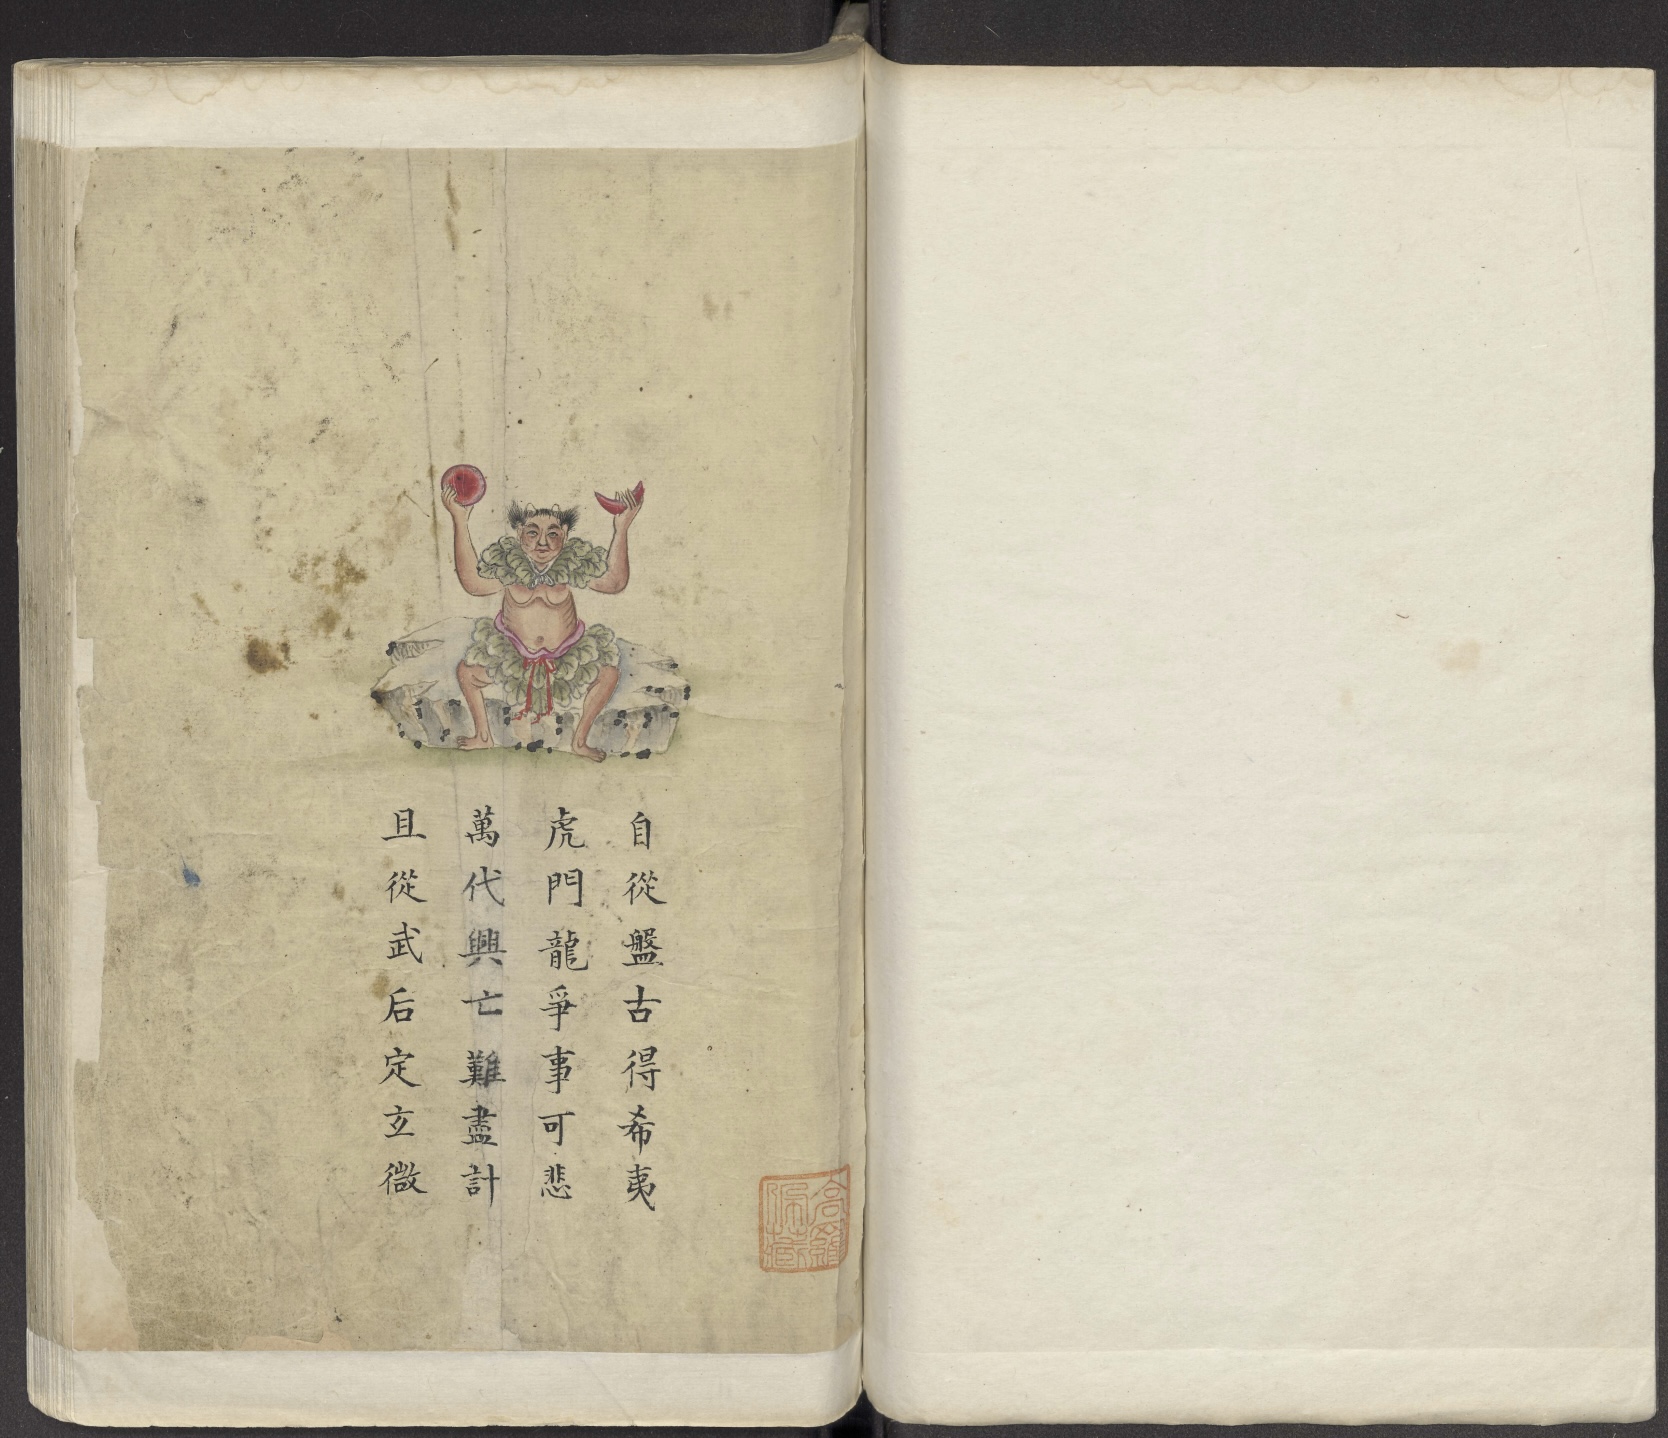 自從盤古得希夷
虎門龍爭事可悲
萬代興亡難盡計
且從武后定立微